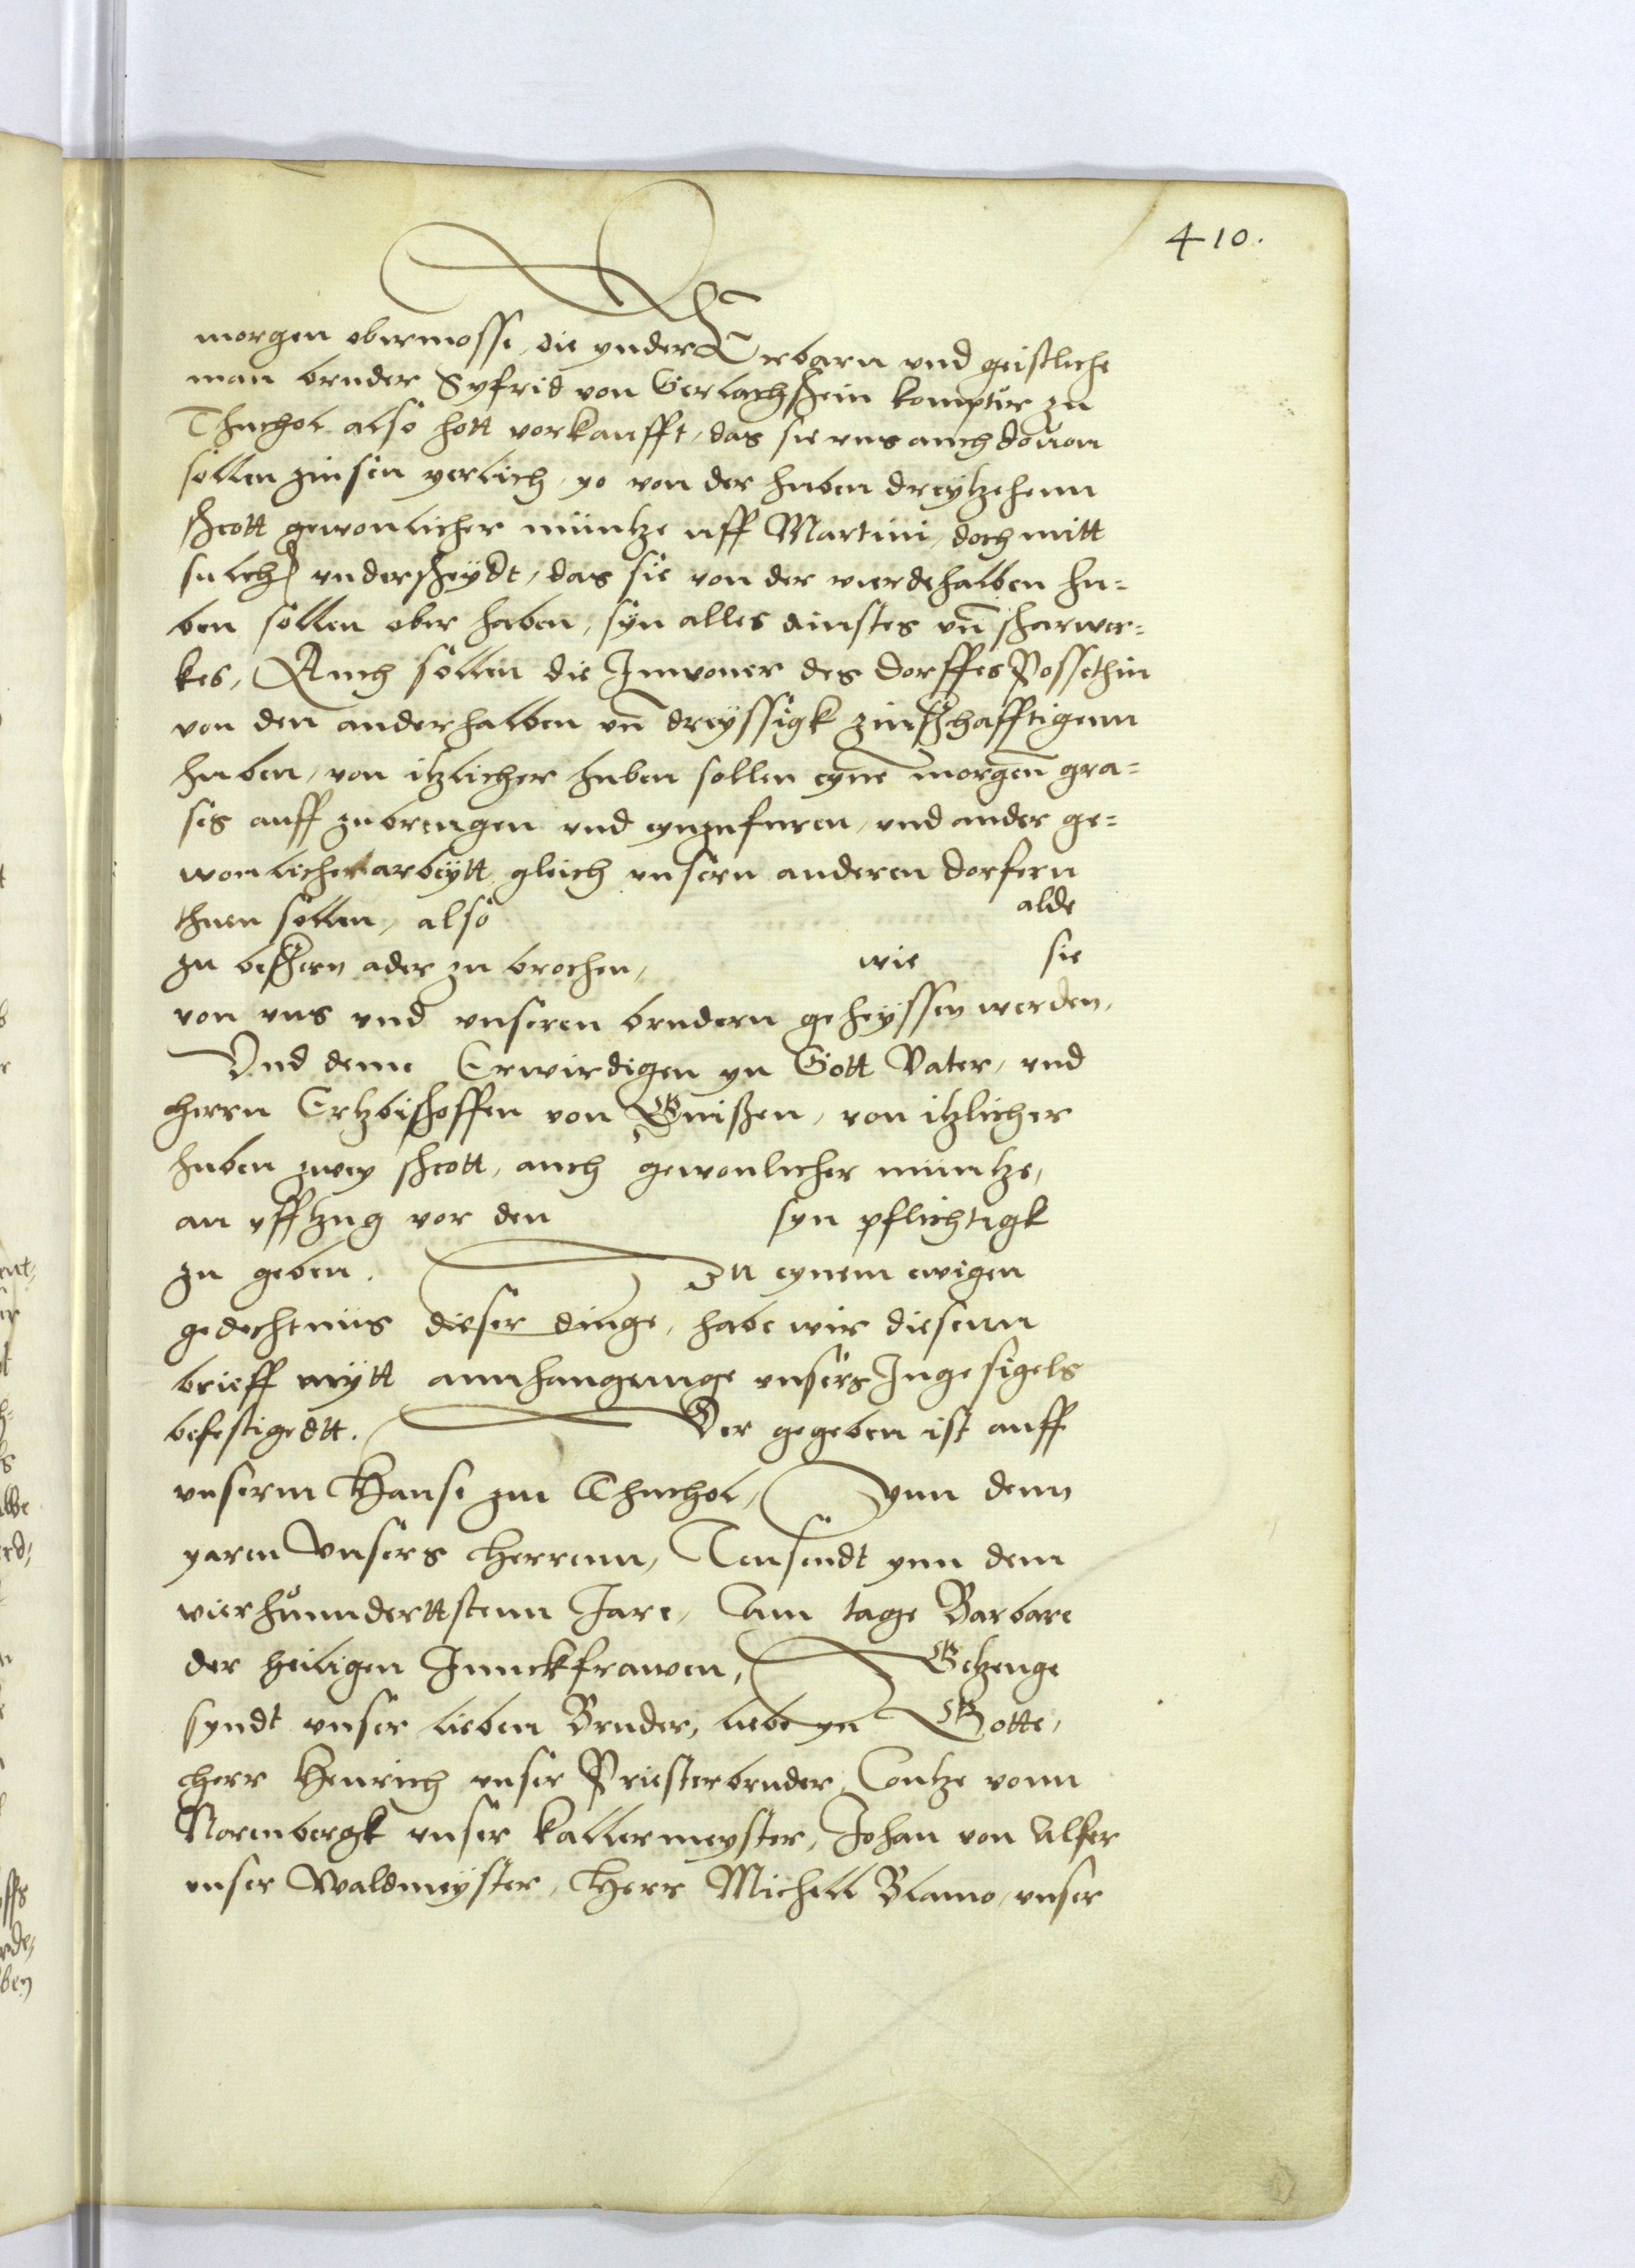 410.
morgen obermosse, die ynder Erbarn vnd geistliche
man bruder Syfrid von Gerlachshein komptur zu
Thuchol also hott vorkaufft, das sie vns auch douon
sollen zinsen yerlich, yo von der huben dreytzehenn
schott gewonlicher müntze uff Martini, doch mitt
sulch vnderscheydt, das sie von der vierdehalben hu=
ben sollen ober haben, syn alles dinstes vn̄ scharwer=
kes, Auch sollen die Inwoner des dorffes Possethin
von den anderhalben vn̄ dreyssigk zinßhafftigenn
huben, von itzlicher huben sollen eyne morgen̄ gra=
ses auff zubrengen vnd eynzufuren, vnd ander ge=
wonlicher arbeytt gleich vnsern anderen dorfern
thuen sollen, also alde
zu besßern ader zu brochen, wie sie
von vns vnd vnseren brudern geheyssen werden,
Vnd deme Erwirdigen yn Gott Vater, vnd
herrn Ertzbischoffen von Gnißen, von itzlicher
huben zwey schott, auch gewonlicher müntze,
an yfftzug vor den syn pflichtigk
zu geben. Zu eynem ewigen
gedechtnüs dieser dinge, habe wir diesenn
brieff mytt annhangunge vnsers Ingesigels
befestigedtt. Der gegeben ist auff
vnserm Hause zu Thuchol, Ynn denn
yaren Vnsers herrenn, Tausendt ynn dem
vierhůnnderttstenn Jare, Am tage Barbare
der heiligen Junckfrawen, Getzeuge
syndt vnser lieben Bruder, liebe yn Gotte,
Herr Henrich vnser Priesterbruder, Contze vonn
Norenbergk vnser kallermeyster, Johan von Alfer
vnser Waldmeyster, Herr Michell Blamo, vnser